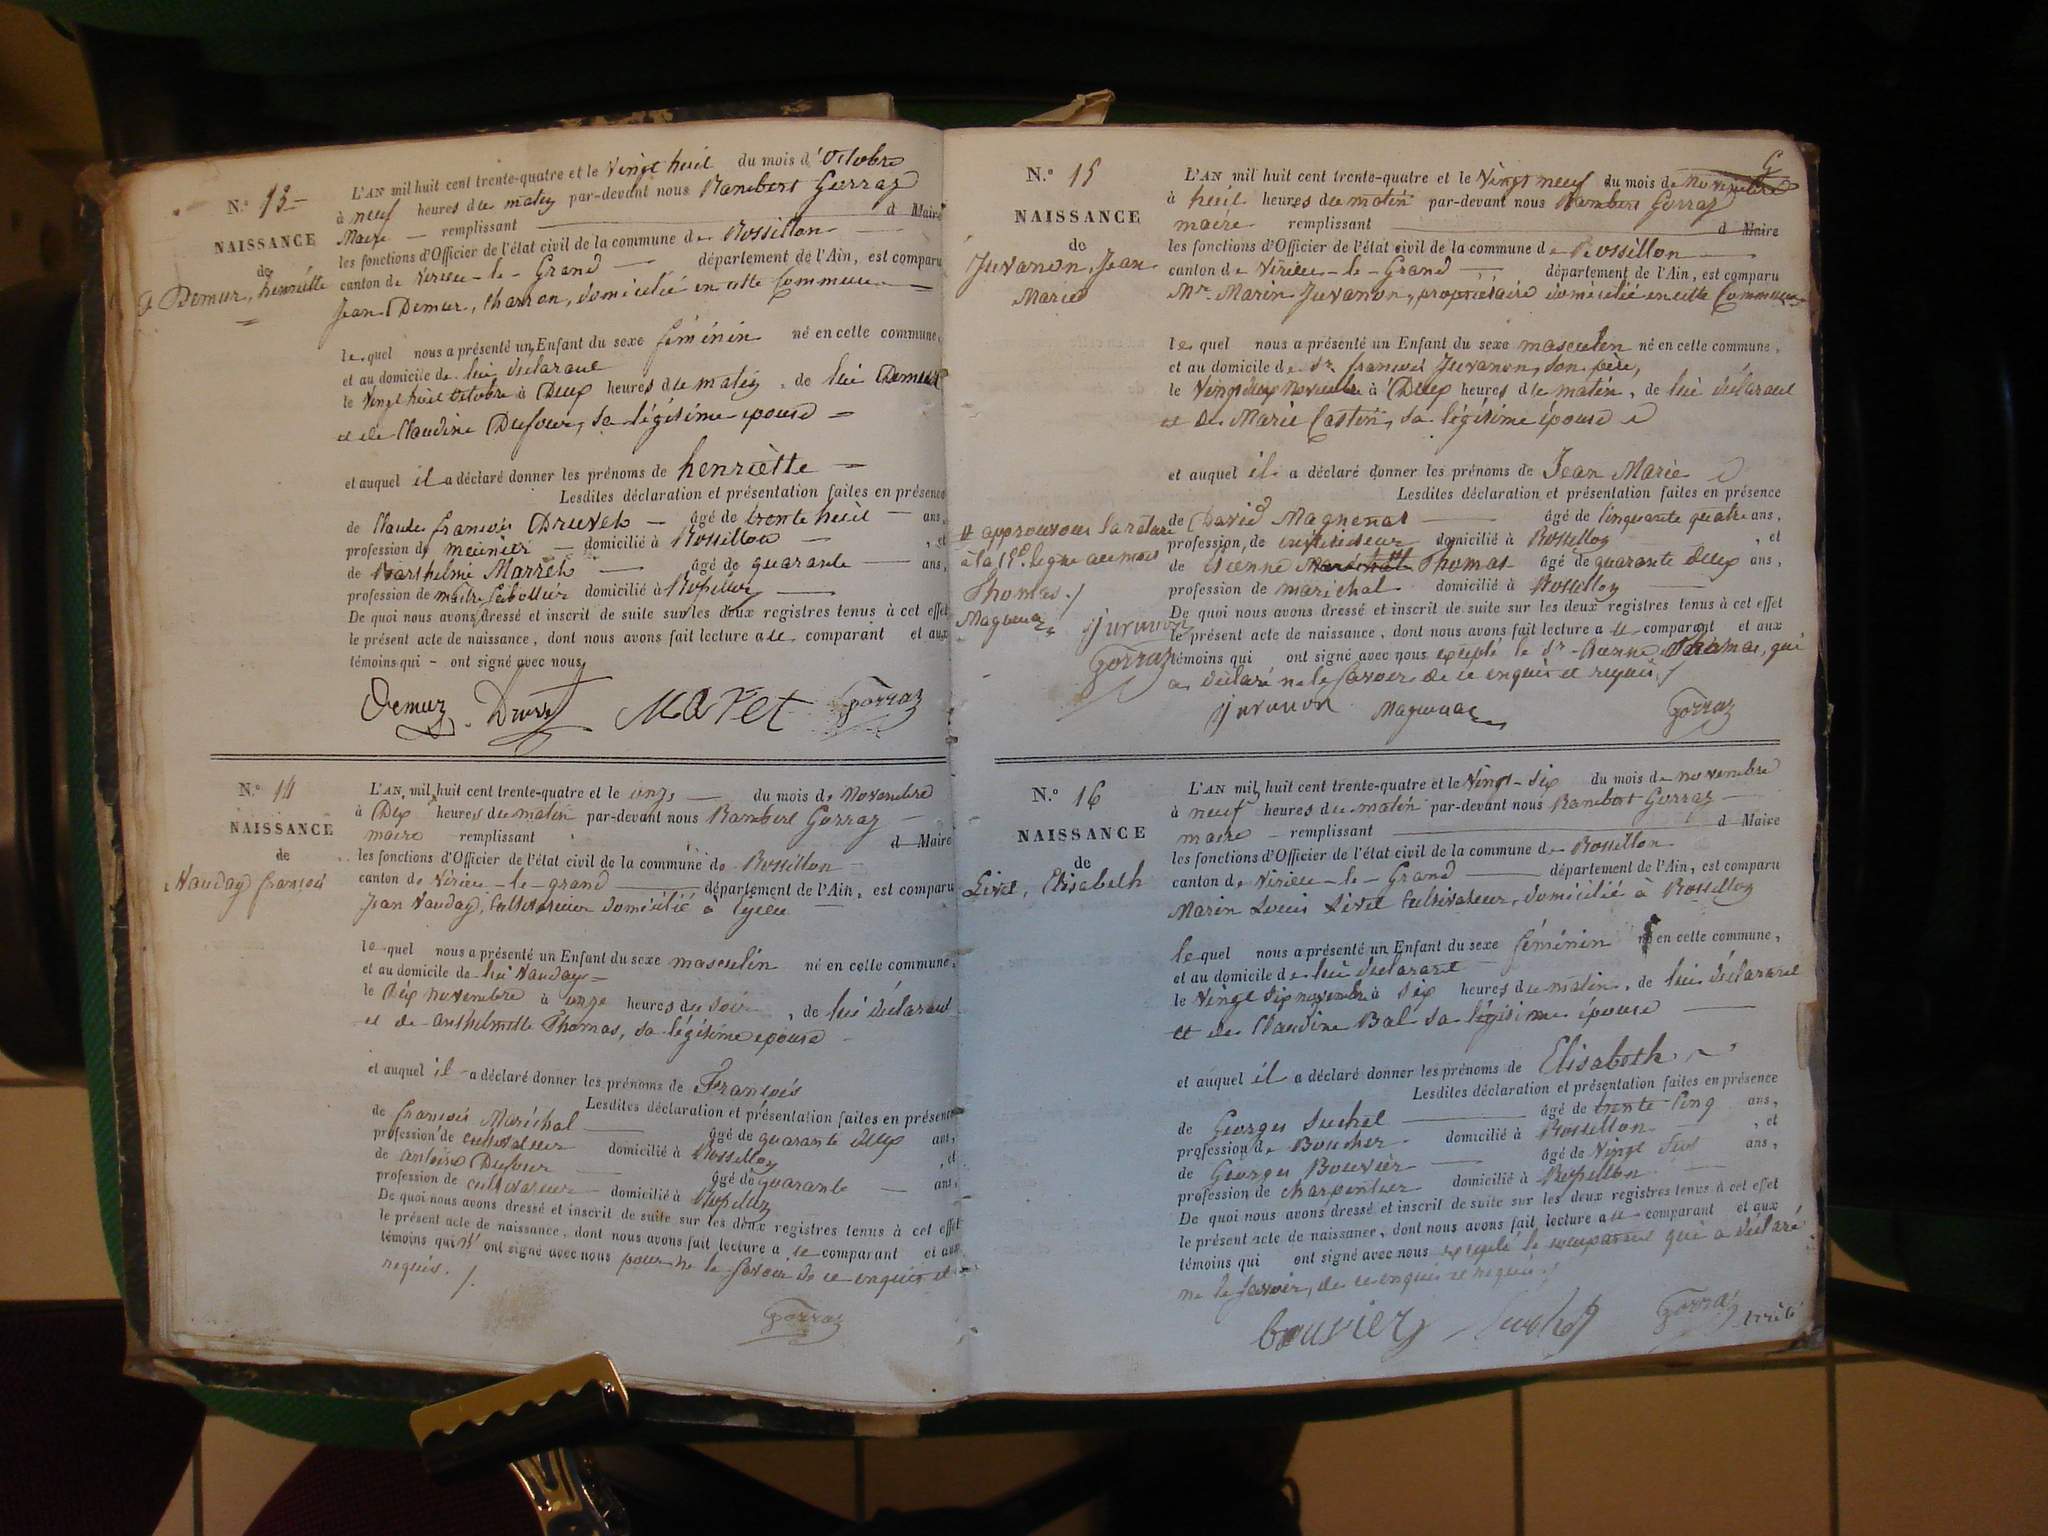 N.° 13
NAISSANCE
de
Demur, henriètte
L'AN mil huit cent trente-quatre et le Vingt huit du mois d'Octobre
à neuf heures du matin par-devant nous Rambert Gorraz
Maire remplissant d Maire
les fonctions d'Officier de l'état civil de la commune de Rossillon
canton de Virieu-le-Grand département de l'Ain, est comparu
Jean Demur, Charron, domicilié en cette Commune
lequel nous a présenté un Enfant du sexe féminin né en cette commune,
et au domicile de lui déclarant
le Vingt huit Octobre à Deux heures du matin, de lui Demur
et de Claudine Dufour, sa légitime épouse
et auquel il a déclaré donner les prénoms de henriètte
Lesdites déclaration et présentation faites en présence
de Claude françois Druvet âgé de trente huit ans,
profession de meunier domicilié à Rossillon, et
de Barthelmi Marret âgé de quarante ans,
profession de maître domicilié à Rossillon
De quoi nous avons dressé et inscrit de suite sur les deux registres tenus à cet effet
le présent acte de naissance, dont nous avons fait lecture a ce comparant et aux
témoins qui ont signé avec nous
Demur Druvet Maret Gorraz
N.° 14
NAISSANCE
de
Nauday françois
L'AN mil huit cent trente-quatre et le onze du mois de Novembre
à Dix heures du matin par-devant nous Rambert Gorraz
maire remplissant d Maire
les fonctions d'Officier de l'état civil de la commune de Rossillon
canton de Virieu-le-grand département de l'Ain, est comparu
Jean Nauday, Cultivateur domicilié à
lequel nous a présenté un Enfant du sexe masculin né en cette commune,
et au domicile de lui Nauday
le Dix novembre à onze heures du soir, de lui déclarant
et de anthelmette Thomas, sa légitime épouse
et auquel il a déclaré donner les prénoms de François
Lesdites déclaration et présentation faites en présence
de françois Maréchal âgé de quarante deux ans,
profession de cultivateur domicilié à Rossillon, et
de antoine Dufour âgé de quarante ans,
profession de cultivateur domicilié à Rossillon
De quoi nous avons dressé et inscrit de suite sur les deux registres tenus à cet effet
le présent acte de naissance, dont nous avons fait lecture a ce comparant et aux
témoins qui n'ont signé avec nous pour ne le savoir de ce enquis et
requis.
Gorraz
N.° 15
NAISSANCE
de
Juvanon, Jean
Marie
L'AN mil huit cent trente-quatre et le Vingt neuf du mois de Novembre
à huit heures du matin par-devant nous Rambert Gorraz
maire remplissant d Maire
les fonctions d'Officier de l'état civil de la commune de Rossillon
canton de Virieu-le-Grand département de l'Ain, est comparu
Mr. Marin Juvanon, propriétaire domicilié en cette Commune
lequel nous a présenté un Enfant du sexe masculin né en cette commune,
et au domicile de Sr. françois Juvanon, son père,
le Vingt deux Novembre à Deux heures du matin, de lui déclarant
et de Marie Castin, sa légitime épouse
et auquel il a déclaré donner les prénoms de Jean Marie
Lesdites déclaration et présentation faites en présence
de David Magnenat âgé de Cinquante quatre ans,
profession de instituteur domicilié à Rossillon, et
de Etienne Thomas âgé de quarante deux ans,
profession de maréchal domicilié à Rossillon
De quoi nous avons dressé et inscrit de suite sur les deux registres tenus à cet effet
le présent acte de naissance, dont nous avons fait lecture a ce comparant et aux
témoins qui ont signé avec nous excepté le Sr. Etienne Thomas, qui
a déclaré ne le savoir de ce enquis et requis
Juvanon Magnenat Gorraz
approuvons la rature
à la ligne au mot
Thomas
Magnenat Juvanon
Gorraz
N.° 16
NAISSANCE
de
Livet, Elisabeth
L'AN mil huit cent trente-quatre et le Vingt-six du mois de novembre
à neuf heures du matin par-devant nous Rambert Gorraz
maire remplissant d Maire
les fonctions d'Officier de l'état civil de la commune de Rossillon
canton de Virieu-le-Grand département de l'Ain, est comparu
Marin Louis Livet Cultivateur, domicilié à Rossillon
lequel nous a présenté un Enfant du sexe féminin né en cette commune,
et au domicile de lui déclarant
le Vingt six novembre à six heures du matin, de lui déclarant
et de Claudine Bal sa légitime épouse
et auquel il a déclaré donner les prénoms de Elisabeth
Lesdites déclaration et présentation faites en présence
de Georges Suchet âgé de trente Cinq ans,
profession de Boucher domicilié à Rossillon, et
de Georges Bouvier âgé de Vingt ans,
profession de charpentier domicilié à Rossillon
De quoi nous avons dressé et inscrit de suite sur les deux registres tenus à cet effet
le présent acte de naissance, dont nous avons fait lecture a ce comparant et aux
témoins qui ont signé avec nous excepté le comparant qui a déclaré
ne le savoir, de ce enquis et requis
bouvier Suchet Gorraz